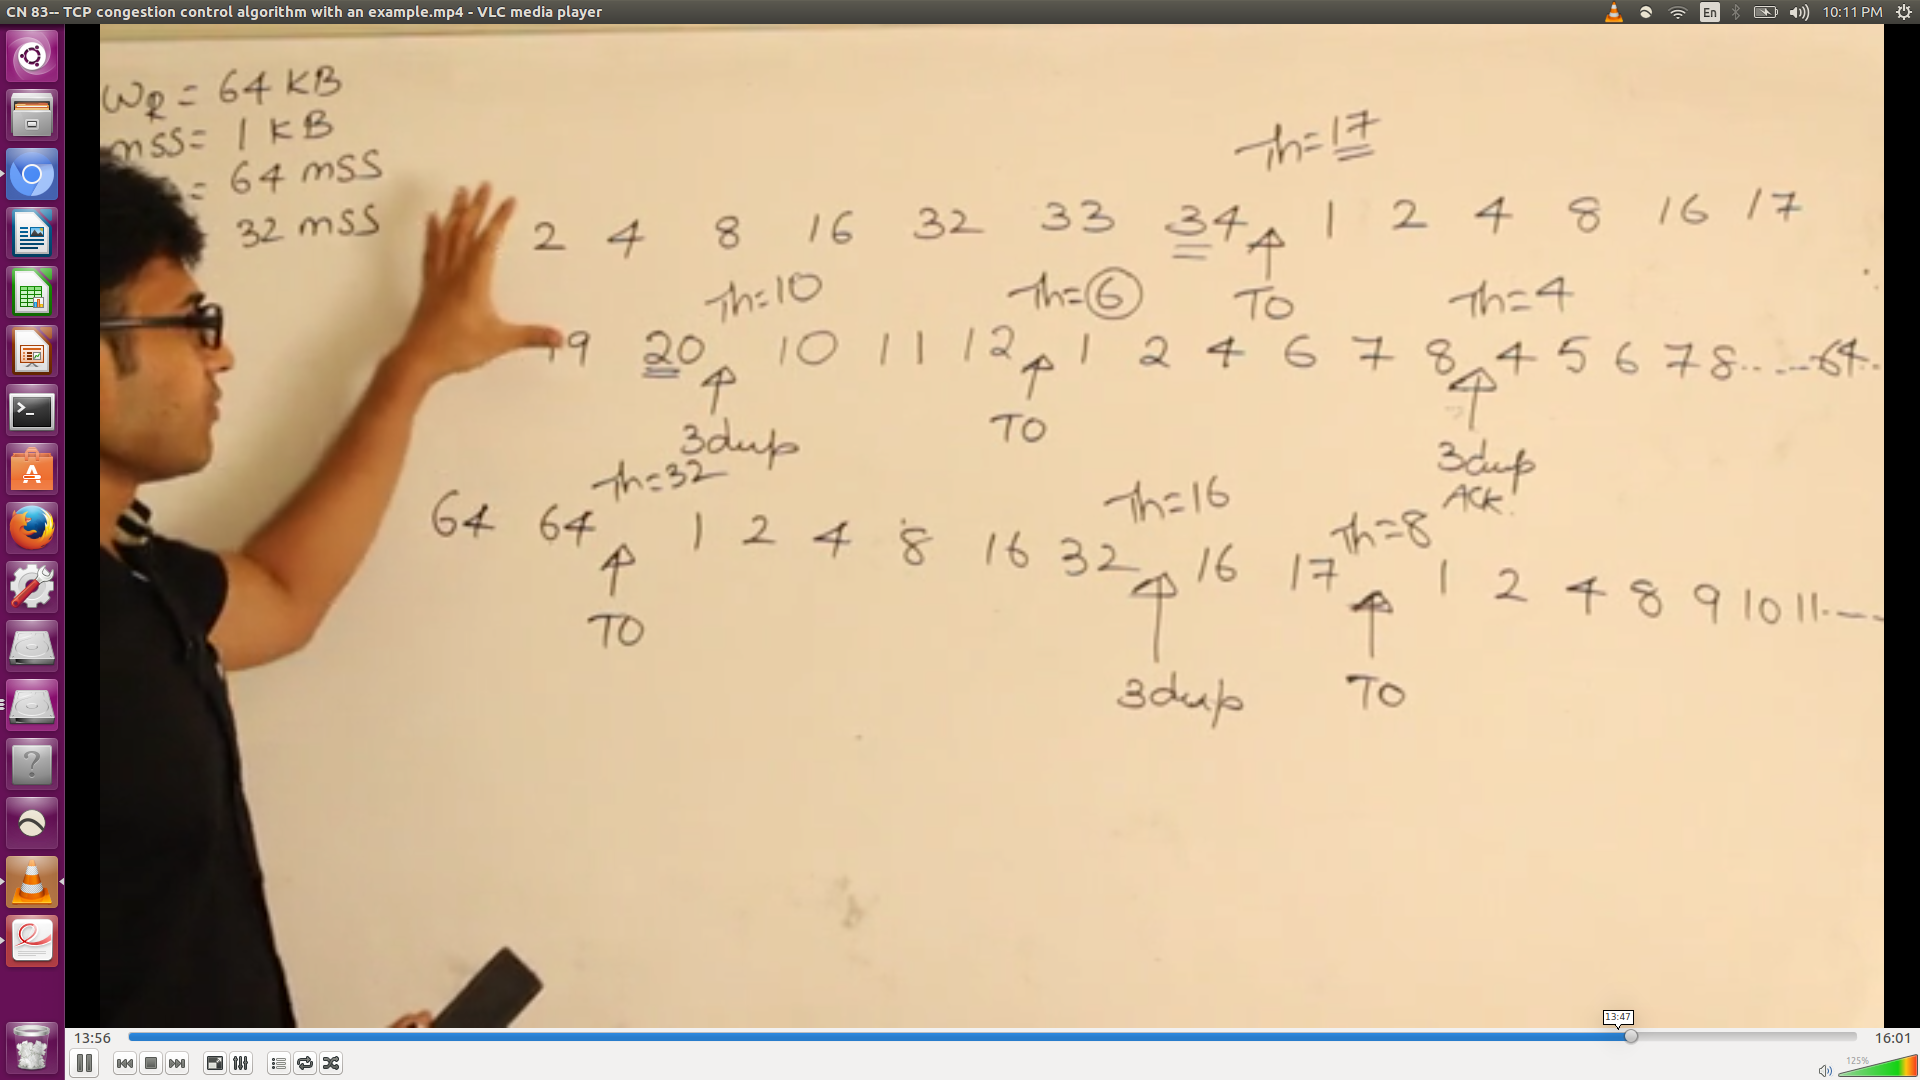 CN 83-- TCP congestion control algorithm with an example.mp4 - VLC media player
En
10:11 PM
WR = 64 KB
mss= 1 KB
= 64 mss
32 mss
Th=17
2 4 8 16 32 33 34 1 2 4 8 16 17
TO
Th=10 Th=6 Th=4
19 20 10 11 12 1 2 4 6 7 8 4 5 6 7 8.. ... 64..
3dup TO 3dup
ACK.
Th=32 Th=16 Th=8
64 64 1 2 4 8 16 32 16 17 1 2 4 8 9 10 11.---
TO 3dup TO
13:47
13:56
16:01
125%